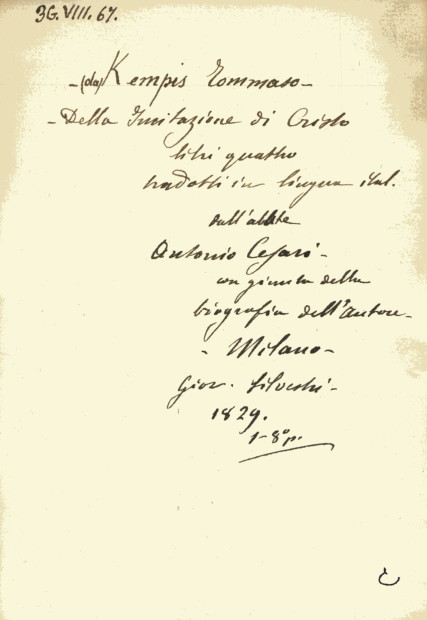 3G.VIII.67.
-(da) Kempis Tommaso-
- Della Imitazione di Cristo
libri quattro
tradotti in lingua ital.
dall'abbate
Antonio Cesari -
con giunta della
biografia dell'autore -
- Milano -
Giov. Silvestri -
1829.
1-8º p.